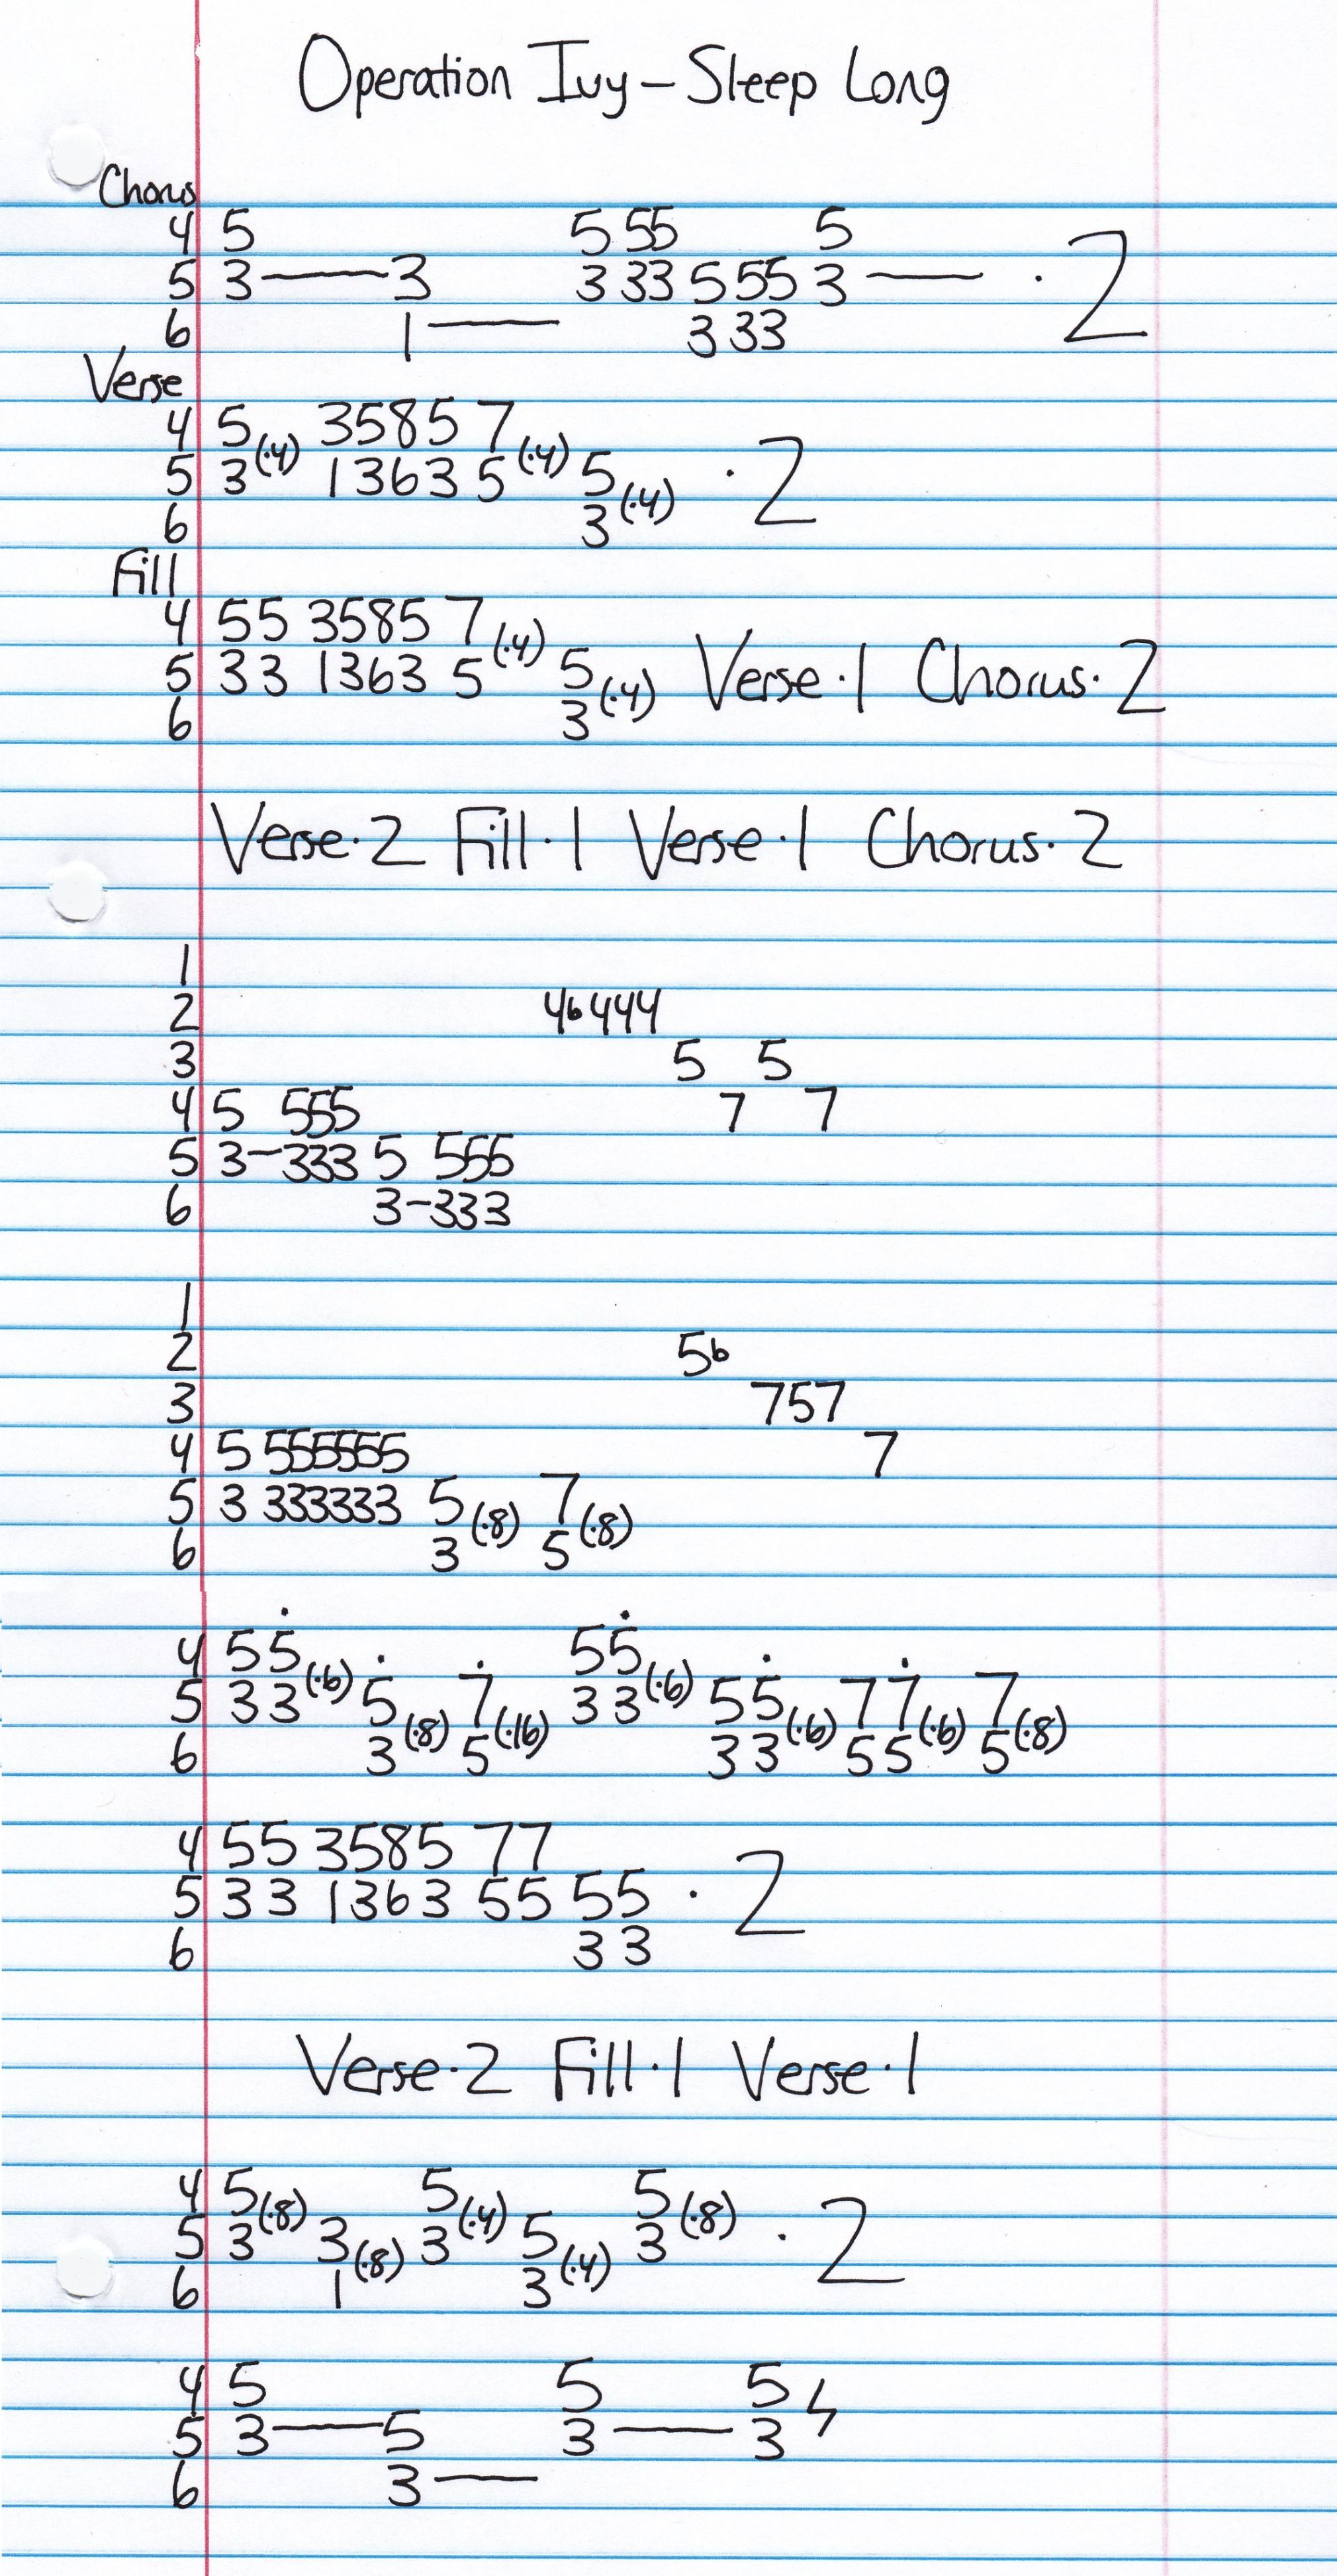 Operation Ivy - Sleep Long
Chorus
4 5 5 55 5
5 3 —— 3 3 33 5 55 3 —— · 2
6 1 —— 3 33
Verse
4 5 (·4) 3 5 8 5 7 (·4)
5 3 1 3 6 3 5 5 (·4) · 2
6 3
Fill
4 5 5 3 5 8 5 7 (·4)
5 3 3 1 3 6 3 5 5 (·4) Verse·1 Chorus·2
6 3
Verse·2 Fill·1 Verse·1 Chorus·2
1
2 4b444
3 5 5
4 5 555 7 7
5 3-333 5 555
6 3-333
1
2 5b
3 757
4 5 555555 7
5 3 333333 5 (·8) 7 (·8)
6 3 5
4 5 5 (·6) 5 5 (·6)
5 3 3 5 (·8) 7 (·16) 3 3 5 5 (·6) 7 7 (·6) 7 (·8)
6 3 5 3 3 5 5 5
4 5 5 3 5 8 5 7 7
5 3 3 1 3 6 3 5 5 5 5 · 2
6 3 3
Verse·2 Fill·1 Verse·1
4 5 (·8) 5 (·4) 5 (·8)
5 3 3 (·8) 3 5 (·4) 3 · 2
6 1 3
4 5 5 5
5 3 —— 5 3 —— 3
6 3 ——